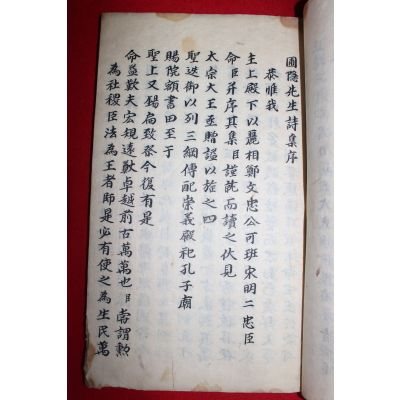 圃隱先生詩集序
恭惟我
主上殿下以麗相鄭文忠公可班宋明二忠臣
命臣幷序其集臣謹詵而讀之伏見
太宗大王亟贈諡以旌之四
聖迭御以列三綱傳配崇義殿祀孔子廟
賜院額書四至于
聖上又錫扁致祭今復有是
命益歎夫宏規遠猷卓越前古萬萬也臣嘗謂勲
為社稷臣法為王者師是必有使之為生民萬